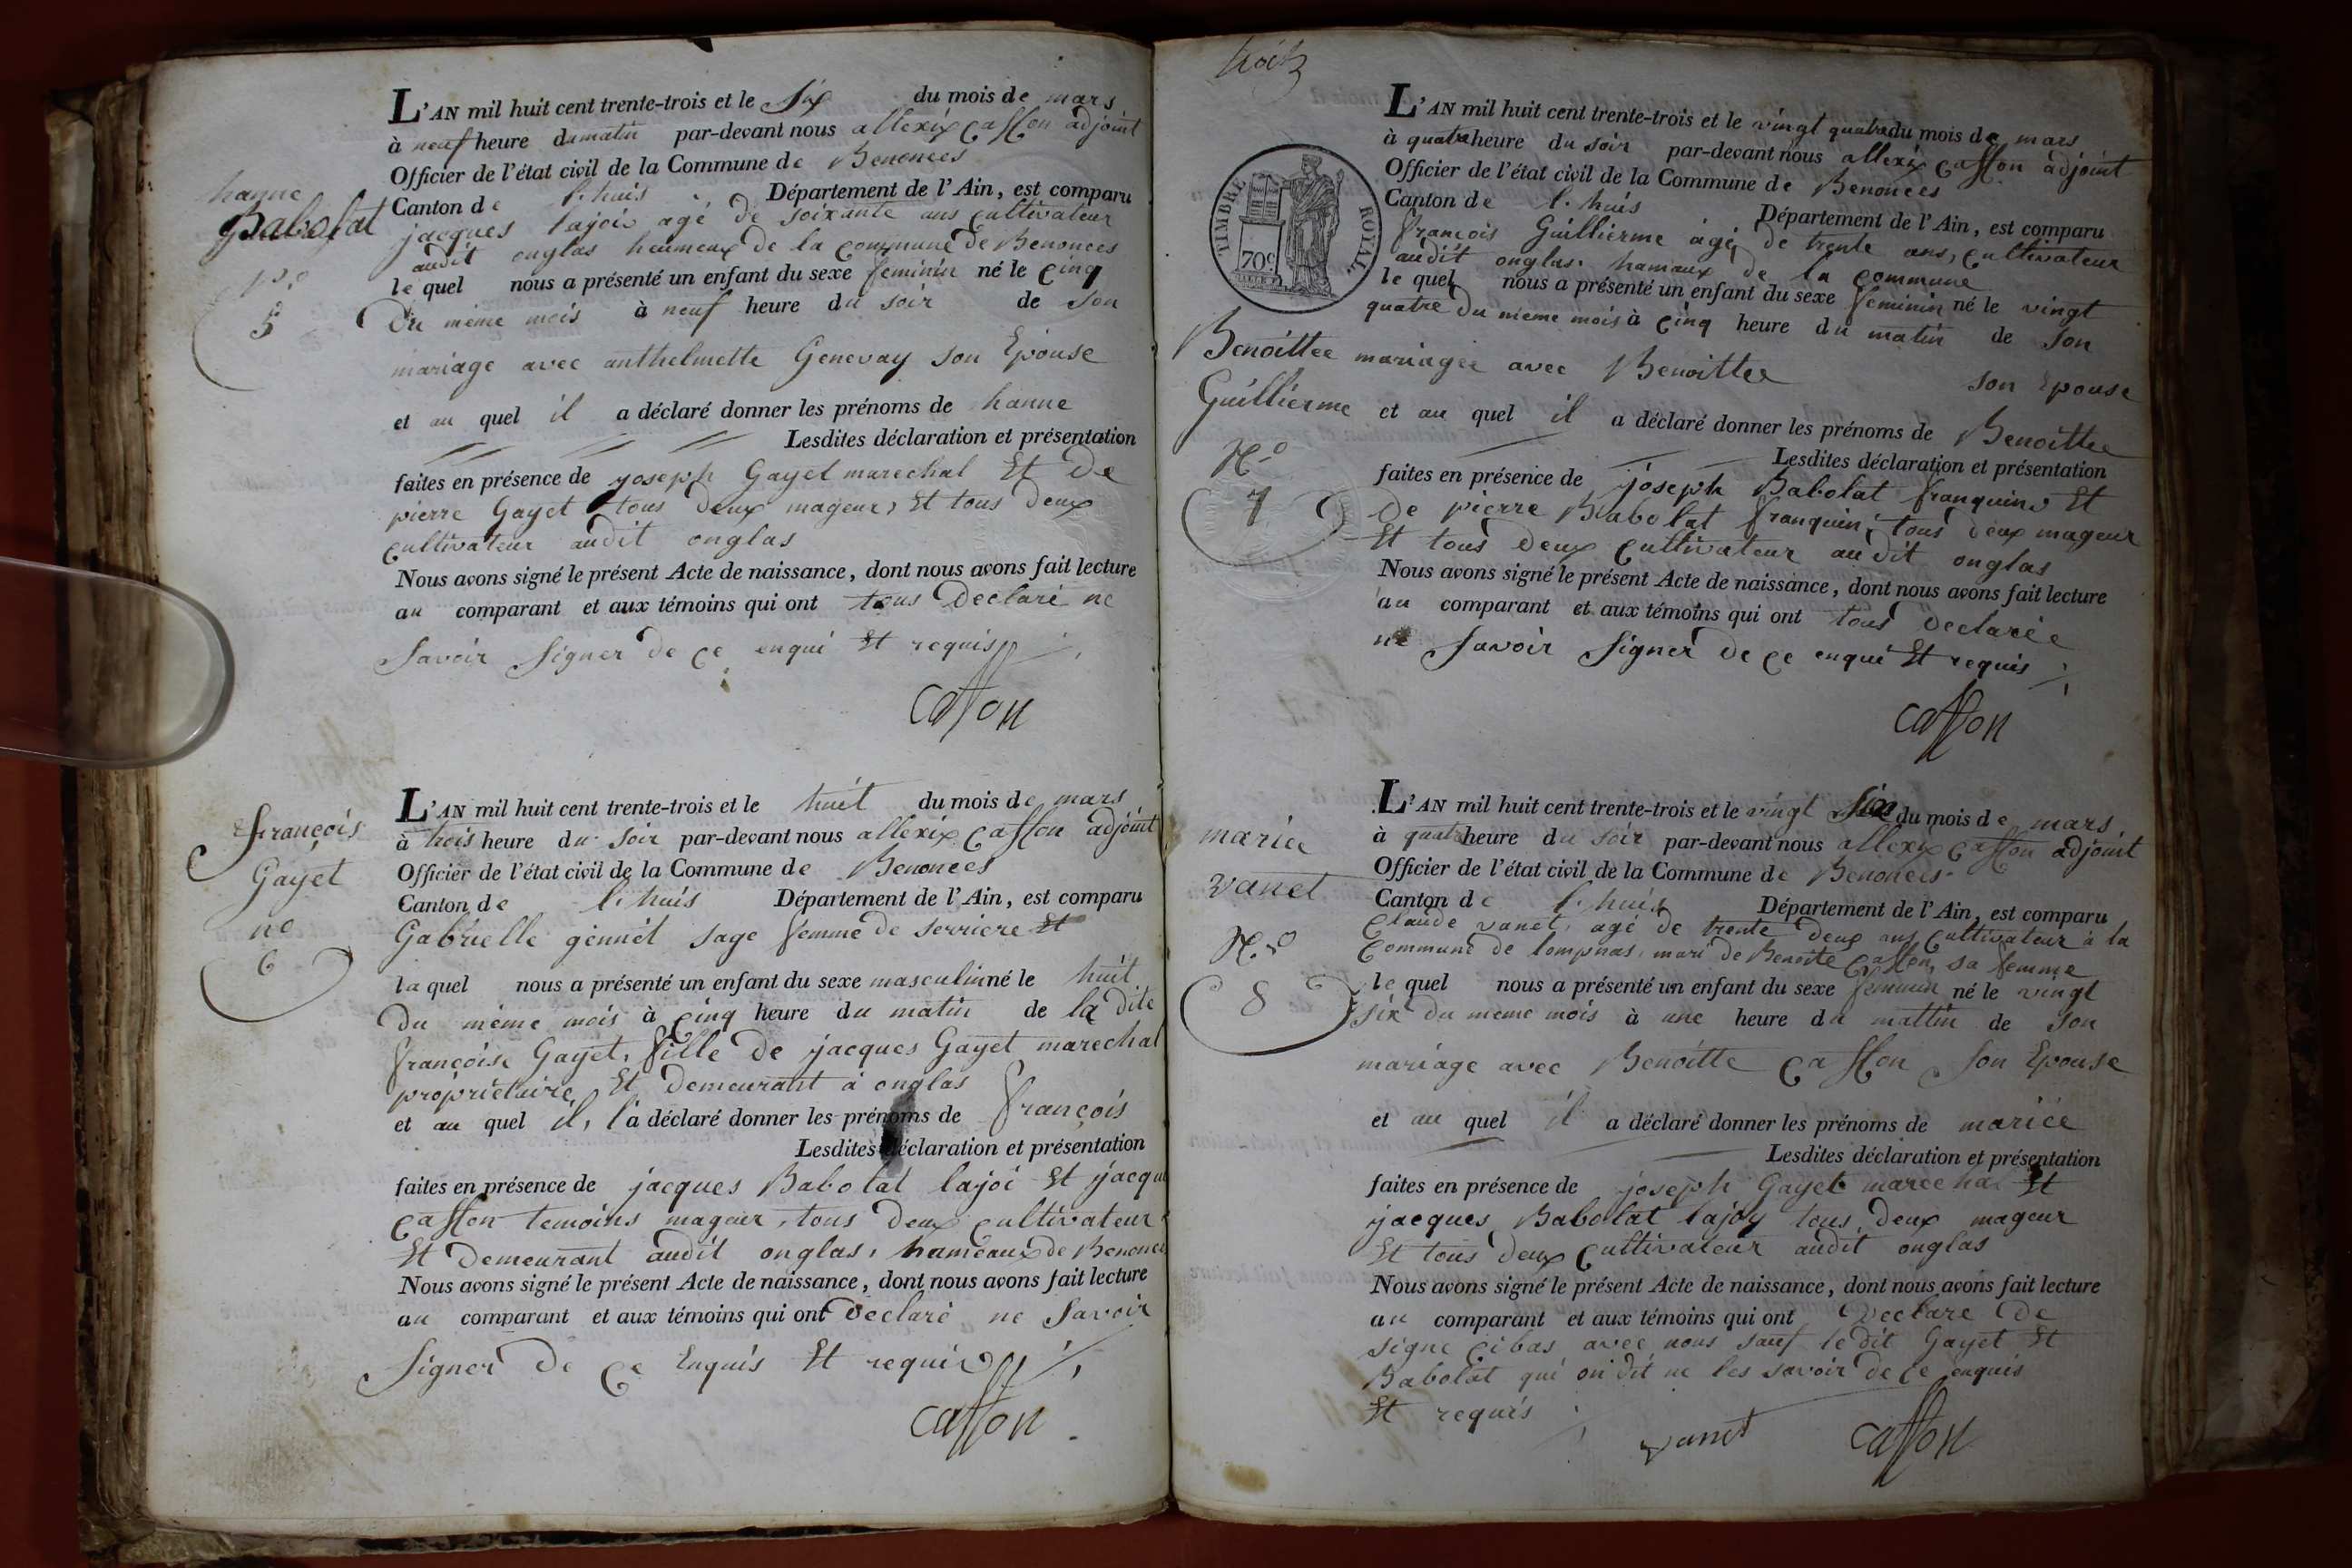 L'AN mil huit cent trente-trois et le six du mois de mars
à neuf heure du matin par-devant nous allexix Caston adjoint
Officier de l'état civil de la Commune de Benonces
Canton de l. huis Département de l'Ain, est comparu
jacques lajoie agé de soixante ans cultivateur
audit onglas heumeux de la commune de Benonces
le quel nous a présenté un enfant du sexe feminin né le cinq
Du même mois à neuf heure du soir de son
mariage avec anthelmette Genevay son Epouse
et au quel il a déclaré donner les prénoms de hanne
Lesdites déclaration et présentation
faites en présence de yoseph Gayet marechal Et De
pierre Gayet tous deux mageur, Et tous deux
cultivateur audit onglas
Nous avons signé le présent Acte de naissance, dont nous avons fait lecture
au comparant et aux témoins qui ont tous Declaré ne
savoir signer de ce enqui Et requis
Caston
hanne
Babolat
5
L'AN mil huit cent trente-trois et le huit du mois de mars
à trois heure du soir par-devant nous allexix Caston adjoint
Officier de l'état civil de la Commune de Benonces
Canton de l. huis Département de l'Ain, est comparu
Gabrielle gennet sage femme de serriere Et
la quel nous a présenté un enfant du sexe masculin né le huit
Du même mois à cinq heure du matin de la dite
françoise Gayet, fille de jacques Gayet marechal
propriétaire Et demeurant à onglas
et au quel il, l'a déclaré donner les prénoms de françois
Lesdites déclaration et présentation
faites en présence de jacques Babolat lajoi Et jacque
Caston temoins mageur, tous deux cultivateur
Et demeurant audit onglas, hameaux de Benonces
Nous avons signé le présent Acte de naissance, dont nous avons fait lecture
au comparant et aux témoins qui ont declaré ne savoir
signer de ce Enquis Et requis
Caston
françois
Gayet
no
6
troiz
TIMBRE ROYAL
70c
L'AN mil huit cent trente-trois et le vingt quatre du mois de mars
à quatre heure du soir par-devant nous allexix Caston adjoint
Officier de l'état civil de la Commune de Benonces
Canton de l. huis Département de l'Ain, est comparu
françois Guillierme agé de trente ans, cultivateur
audit onglas. hamaux de la commune
le quel nous a présenté un enfant du sexe feminin né le vingt
quatre du meme mois à cinq heure du matin de son
mariagee avec Benoittee son Epouse
et au quel il a déclaré donner les prénoms de Benoittee
Lesdites déclaration et présentation
faites en présence de joseph Babolat franquin Et
De pierre Babolat franquin, tous deux mageur
Et tous deux cultivateur audit onglas
Nous avons signé le présent Acte de naissance, dont nous avons fait lecture
au comparant et aux témoins qui ont tous declarée
ne savoir signer de ce enqui Et requis
Caston
Benoittee
Guillierme
No
7
L'AN mil huit cent trente-trois et le vingt six du mois de mars
à quatre heure du soir par-devant nous allexix Caston adjoint
Officier de l'état civil de la Commune de Benonces
Canton de l. huis Département de l'Ain, est comparu
Claude vanet, agé de trente deux ans cultivateur à la
commune de lompnas, mari de Benoite Caston, sa femme
le quel nous a présenté un enfant du sexe feminin né le vingt
six du meme mois à une heure du mattin de son
mariage avec Benoitte Caston son Epouse
et au quel il a déclaré donner les prénoms de mariée
Lesdites déclaration et présentation
faites en présence de joseph Gayet marechal Et
jacques Babolat lajoy tous deux mageur
Et tous deux cultivateur audit onglas
Nous avons signé le présent Acte de naissance, dont nous avons fait lecture
au comparant et aux témoins qui ont declaré de
signe cibas avec nous sauf ledit Gayet Et
Babolat qui on dit ne les savoir de ce enquis
Et requis
vanet Caston
mariee
vanet
No
8